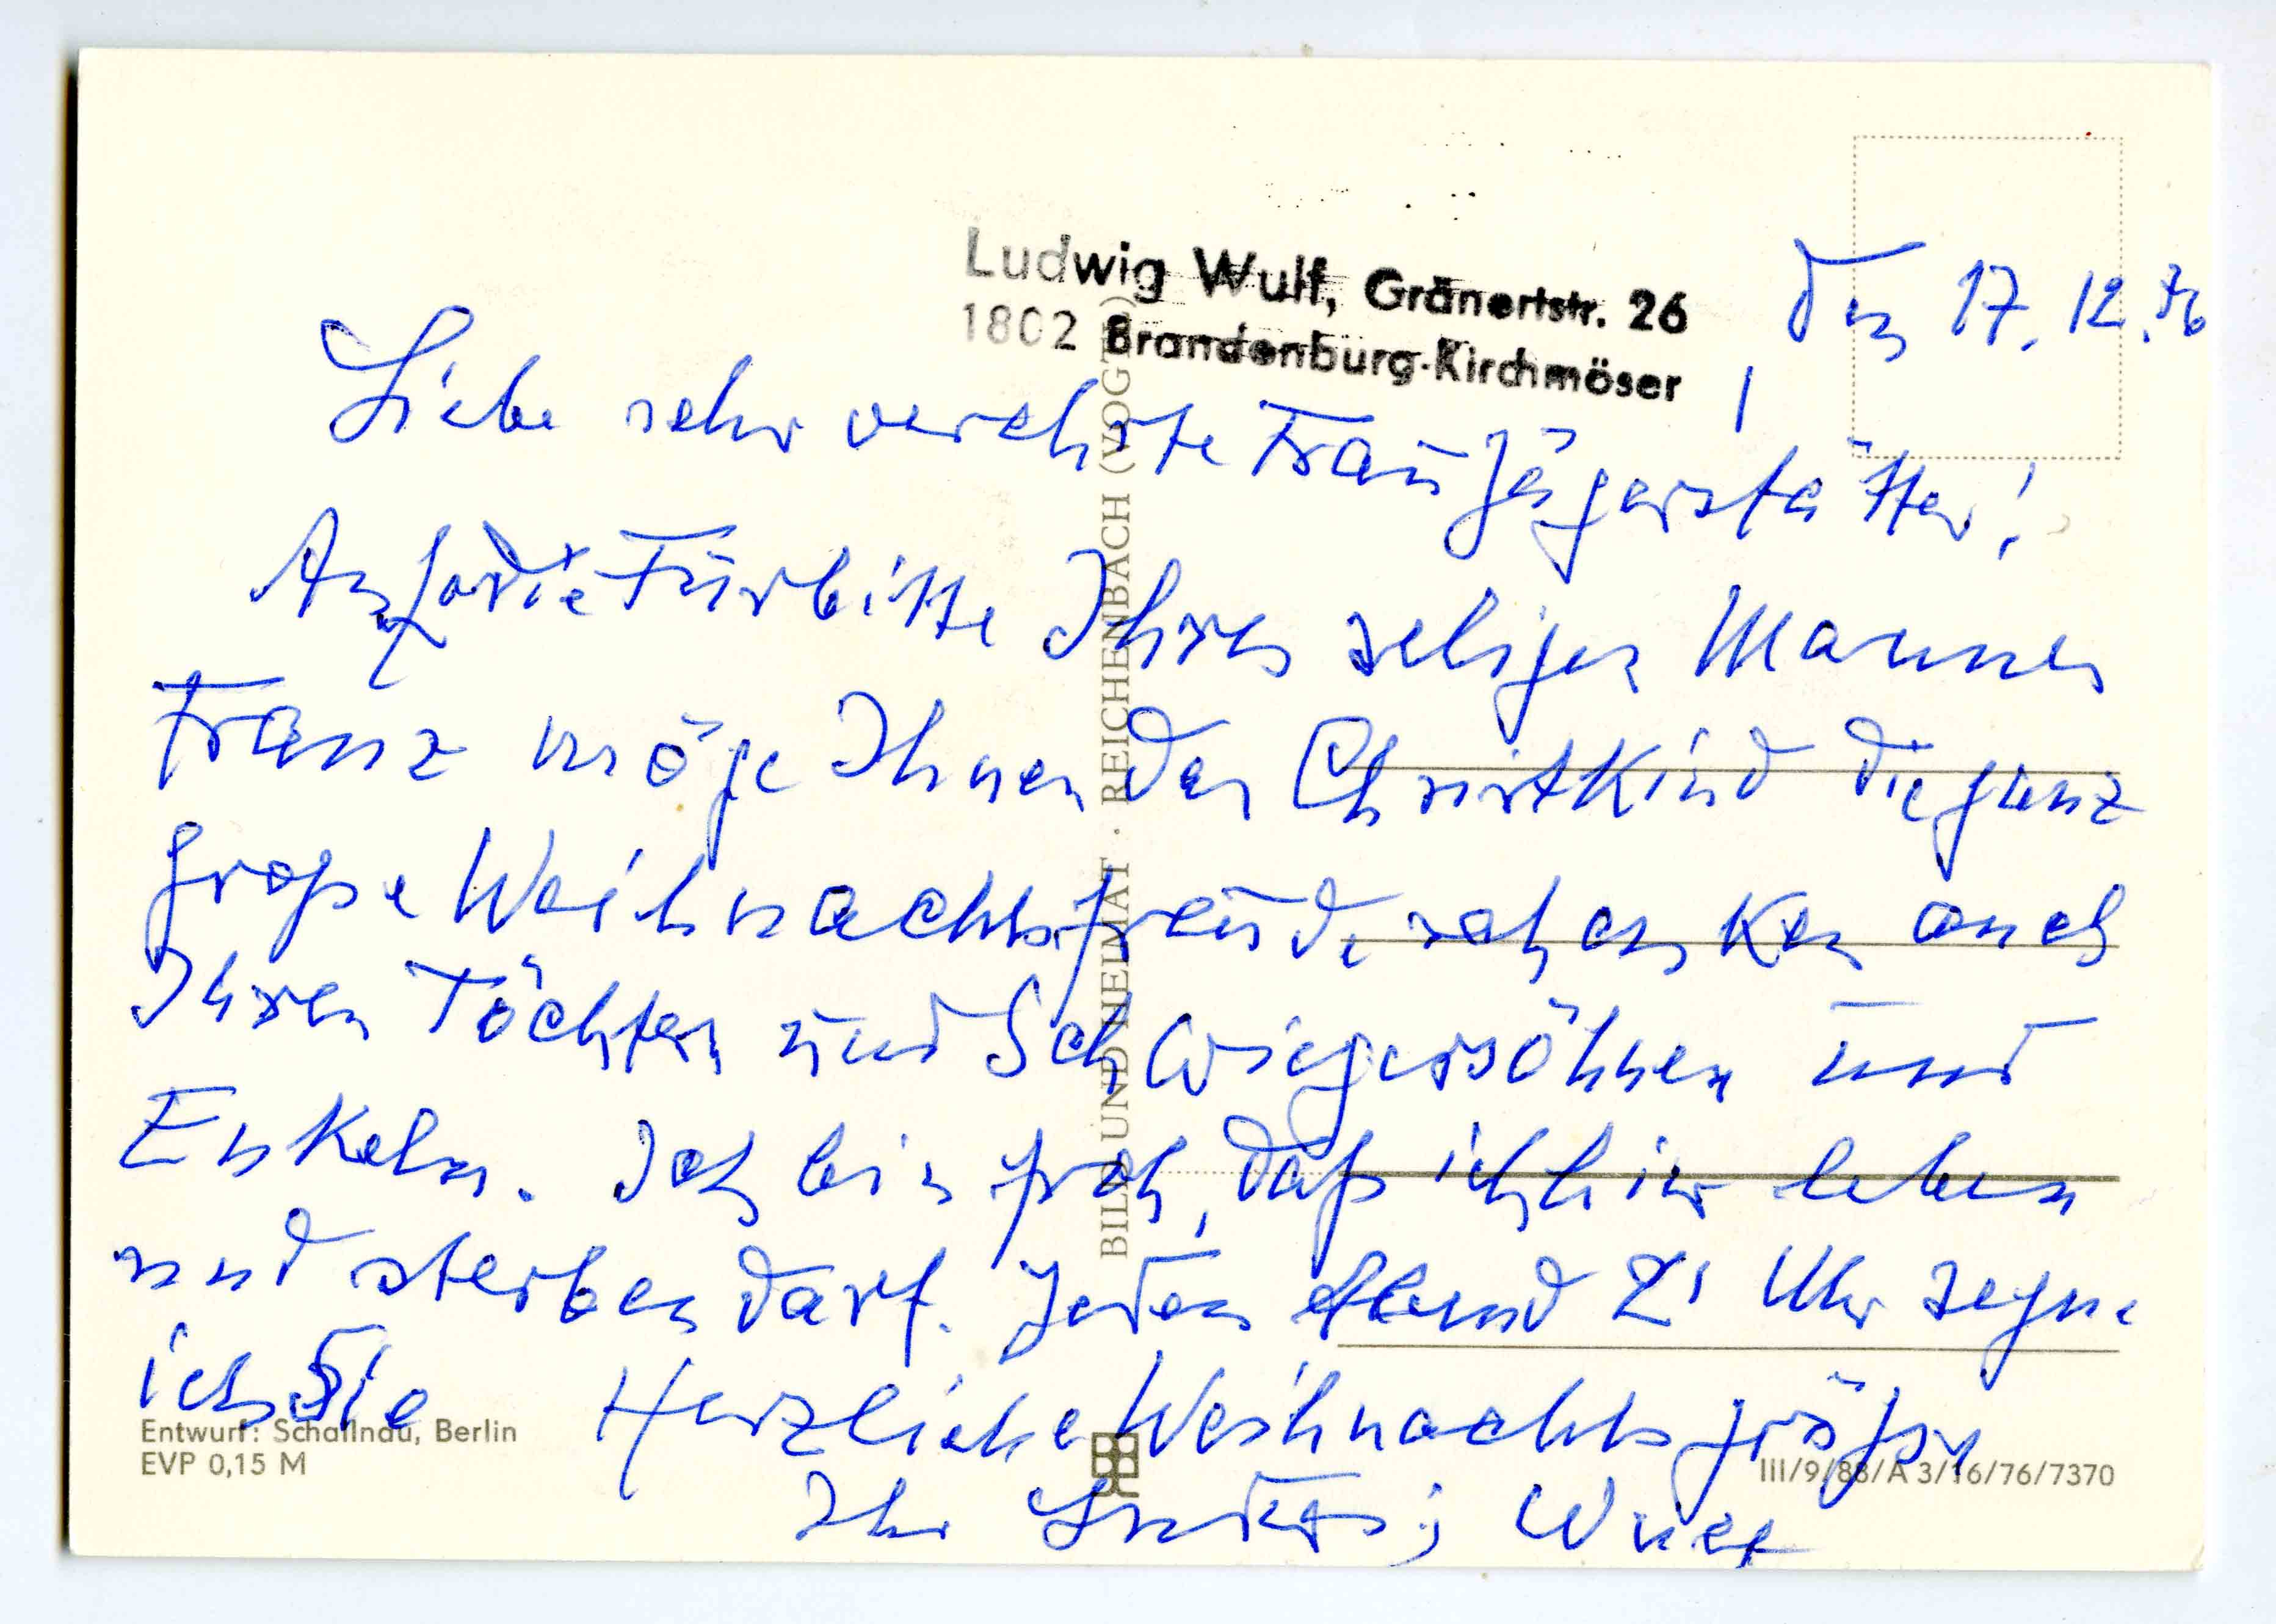 Ludwig Wulf, Gränertstr. 26
1802 Brandenburg-Kirchmöser
den 17. 12. 76
Liebe sehr verehrte Frau Jägerstätter!
die Fürbitte Ihres seligen Mannes
Franz möge Ihnen das Christkind die ganz
große Weihnachtsfreude schenken auch
Ihren Töchtern und Schwiegersöhnen und
Enkeln. Ich bin froh, daß ich hier leben
und sterben darf. Jeden Abend 21 Uhr segne
ich Sie Herzliche Weihnachtsgrüße
Ihr Ludwig Wulf
BILD UND HEIMAT · REICHENBACH (VOGTL)
Entwurf: Schallnau, Berlin
EVP 0,15 M
III/9/88/A 3/16/76/7370